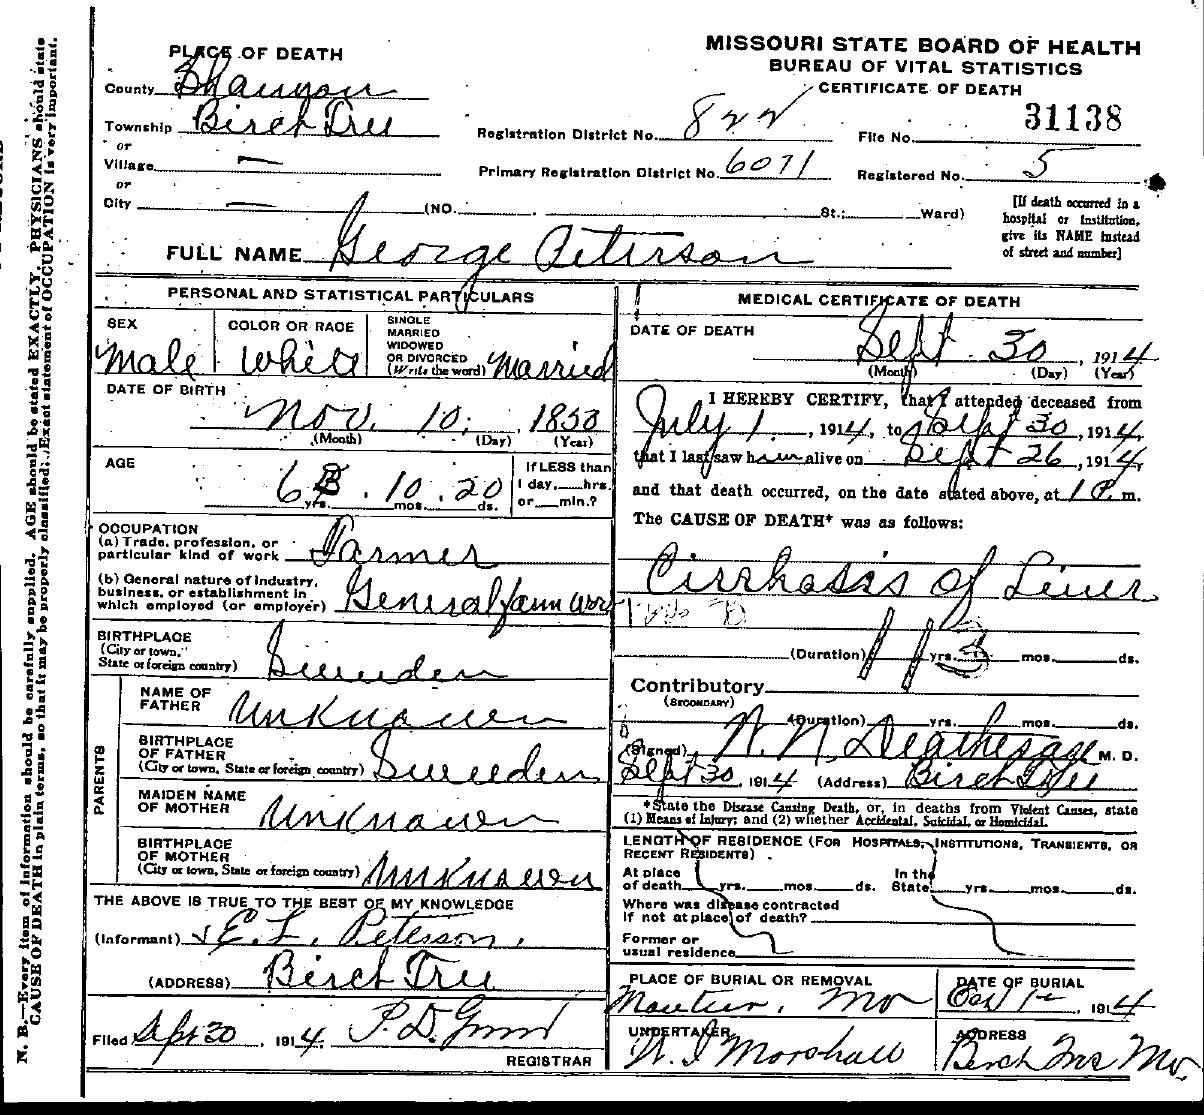 N. B.—Every item of information should be carefully supplied. AGE should be stated EXACTLY. PHYSICIANS should state
CAUSE OF DEATH in plain terms, so that it may be properly classified. Exact statement of OCCUPATION is very important.
MISSOURI STATE BOARD OF HEALTH
BUREAU OF VITAL STATISTICS
CERTIFICATE OF DEATH
PLACE OF DEATH
County Shannon
Township Birch Tree
or
Village —
or
City — (NO. St.; Ward)
Registration District No. 822
File No. 31138
Primary Registration District No. 6071
Registered No. 5
[If death occurred in a
hospital or institution,
give its NAME instead
of street and number]
FULL NAME George Peterson
PERSONAL AND STATISTICAL PARTICULARS
SEX
Male
COLOR OR RACE
White
SINGLE
MARRIED
WIDOWED
OR DIVORCED
(Write the word) Married
DATE OF BIRTH
Nov. 10, 1850
(Month) (Day) (Year)
AGE
10 20
yrs. mos. ds.
If LESS than
1 day, hrs.
or min.?
OCCUPATION
(a) Trade, profession, or
particular kind of work Farmer
(b) General nature of industry,
business, or establishment in
which employed (or employer) General farm work
BIRTHPLACE
(City or town,
State or foreign country) Sweeden
PARENTS
NAME OF
FATHER Unknawen
BIRTHPLACE
OF FATHER
(City or town, State or foreign country) Sweeden
MAIDEN NAME
OF MOTHER Unknawen
BIRTHPLACE
OF MOTHER
(City or town, State or foreign country) Unknawen
THE ABOVE IS TRUE TO THE BEST OF MY KNOWLEDGE
(Informant) E. L. Peterson.
(ADDRESS) Birch Tree
Filed Sept 30, 1914. P. D. Gum
REGISTRAR
MEDICAL CERTIFICATE OF DEATH
DATE OF DEATH
Sept. 30, 1914
(Month) (Day) (Year)
I HEREBY CERTIFY, that I attended deceased from
July 1, 1914, to Sept 30, 1914,
that I last saw him alive on Sept 26, 1914,
and that death occurred, on the date stated above, at 1 P. m.
The CAUSE OF DEATH* was as follows:
Cirrhasis of Liver
113
(Duration) yrs. mos. ds.
Contributory
(SECONDARY)
(Duration) yrs. mos. ds.
(Signed) W. N. Deatherage M. D.
Sept 30, 1914 (Address) Birch Tree
*State the Disease Causing Death, or, in deaths from Violent Causes, state
(1) Means of Injury; and (2) whether Accidental, Suicidal, or Homicidal.
LENGTH OF RESIDENCE (FOR HOSPITALS, INSTITUTIONS, TRANSIENTS, OR
RECENT RESIDENTS).
At place
of death yrs. mos. ds.
In the
State yrs. mos. ds.
Where was disease contracted
if not at place of death?
Former or
usual residence
PLACE OF BURIAL OR REMOVAL
Montier, Mo
DATE OF BURIAL
Oct 1st 1914
UNDERTAKER
W. I Marshall
ADDRESS
Birch Tree Mo.